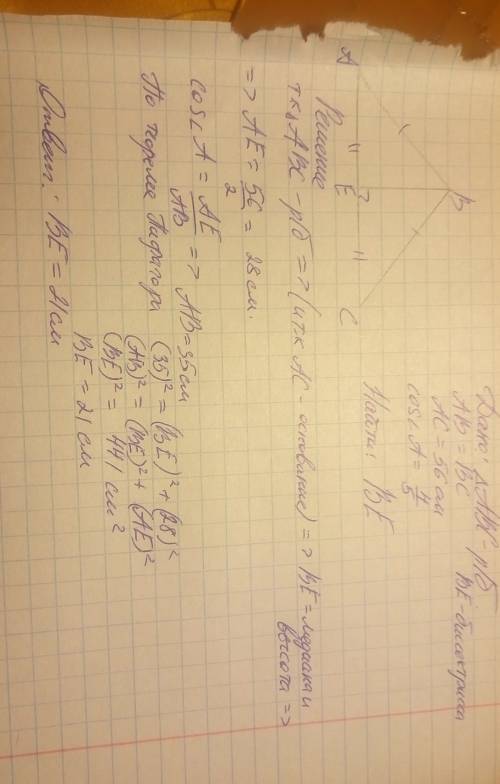 Дано: △ABC - р/б
AB = BC   BE - биссектриса
AC = 56 см
cos∠A = 4/5
Найти: BE
A
B
C
E
Решение
т.к △ABC - р/б => (и т.к AC - основание) => BE = медиана и
высота =>
=> AE = 56/2 = 28 см.
cos∠A = AE/AB => AB = 35 см
По теореме Пифагора (35)² = (BE)² + (28)²
(AB)² = (BE)² + (AE)²
(BE)² = 441 см²
BE = 21 см
Ответ: BE = 21 см